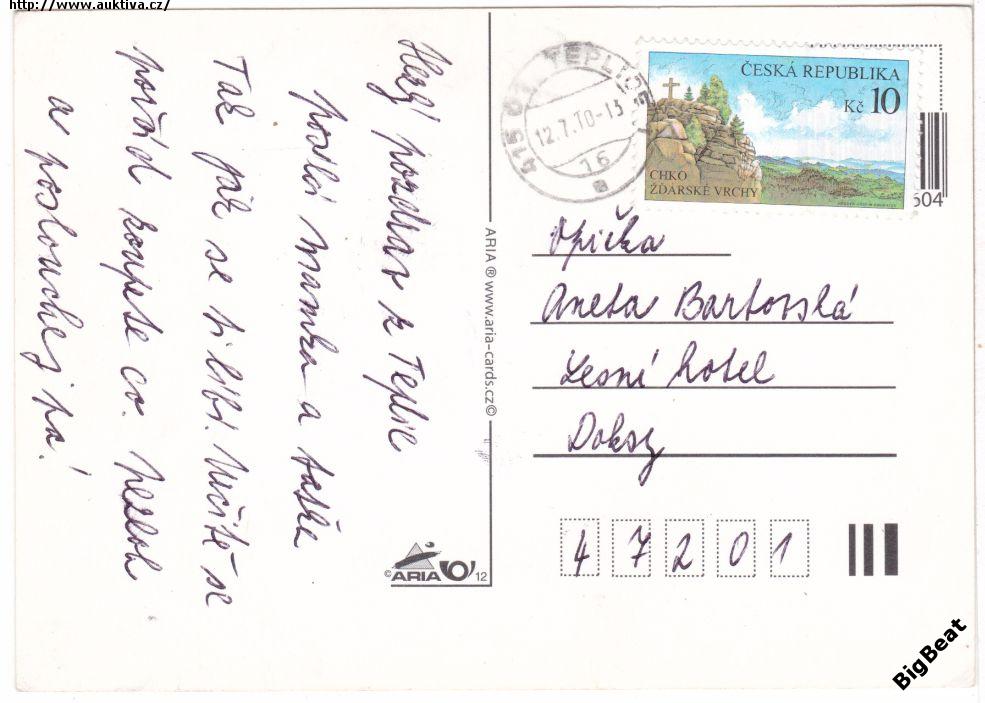 http://www.auktiva.cz/
Hezký pozdrav z Teplic
posílá mamka a taťka
Tak jak se ti líbí. Určitě se
pořád koupete co. nezlob
a poslouchej pa!
415 01 TEPLICE 1
12.7.10-13
16
a
ČESKÁ REPUBLIKA
Kč 10
CHKO
ŽĎÁRSKÉ VRCHY
604
ARIA ® www.aria-cards.cz ©
Opička
Aneta Bartovská
Lesní hotel
Doksy
© ARIA 12
4 7 2 0 1
BigBeat